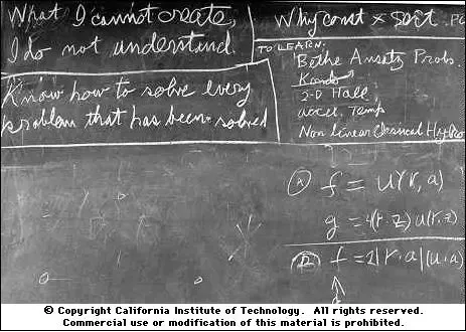 What I cannot create,
I do not understand.
Know how to solve every
problem that has been solved
Why const × sort . PO
TO LEARN:
Bethe Ansatz Probs.
Kondo
2-D Hall
accel. Temp
Non Linear Classical Hydro
f = u(r, a)
g = 4(r·z) u(r, z)
f = 2|r·a|(u·a)
© Copyright California Institute of Technology. All rights reserved.
Commercial use or modification of this material is prohibited.